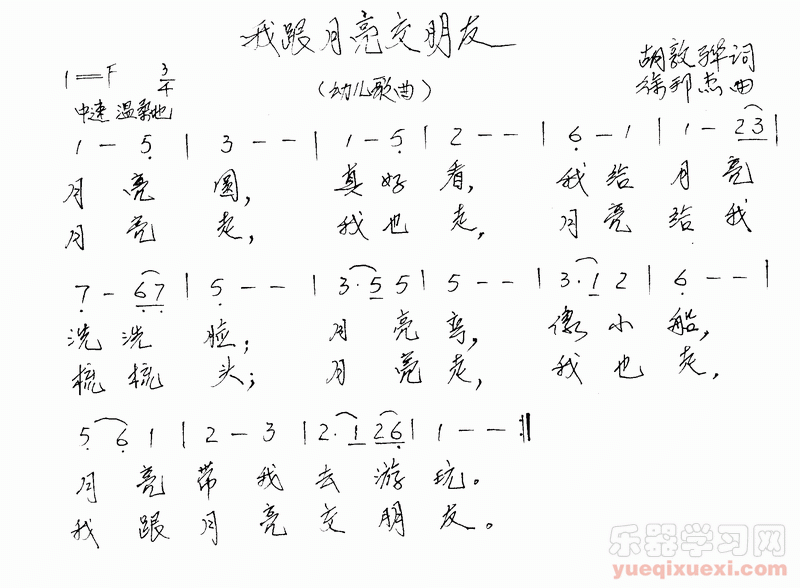 我跟月亮交朋友
胡敦骅词
1=F 3/4 (幼儿歌曲) 徐邦杰曲
中速 温柔地
1 - 5̣ | 3 - - | 1 - 5̣ | 2 - - | 6̣ - 1 | 1 - 2 3 |
月亮圆, 真好看, 我给月亮
月亮走, 我也走, 月亮给我
7̣ - 6̣ 7̣ | 5̣ - - | 3·5 5 5 | 5 - - | 3·1 2 | 6̣ - - |
洗洗脸; 月亮弯, 像小船,
梳梳头; 月亮走, 我也走,
5̣ 6̣ 1 | 2 - 3 | 2·1 2 6̣ | 1 - - :||
月亮带我去游玩。
我跟月亮交朋友。
乐器学习网
yueqixuexi.com